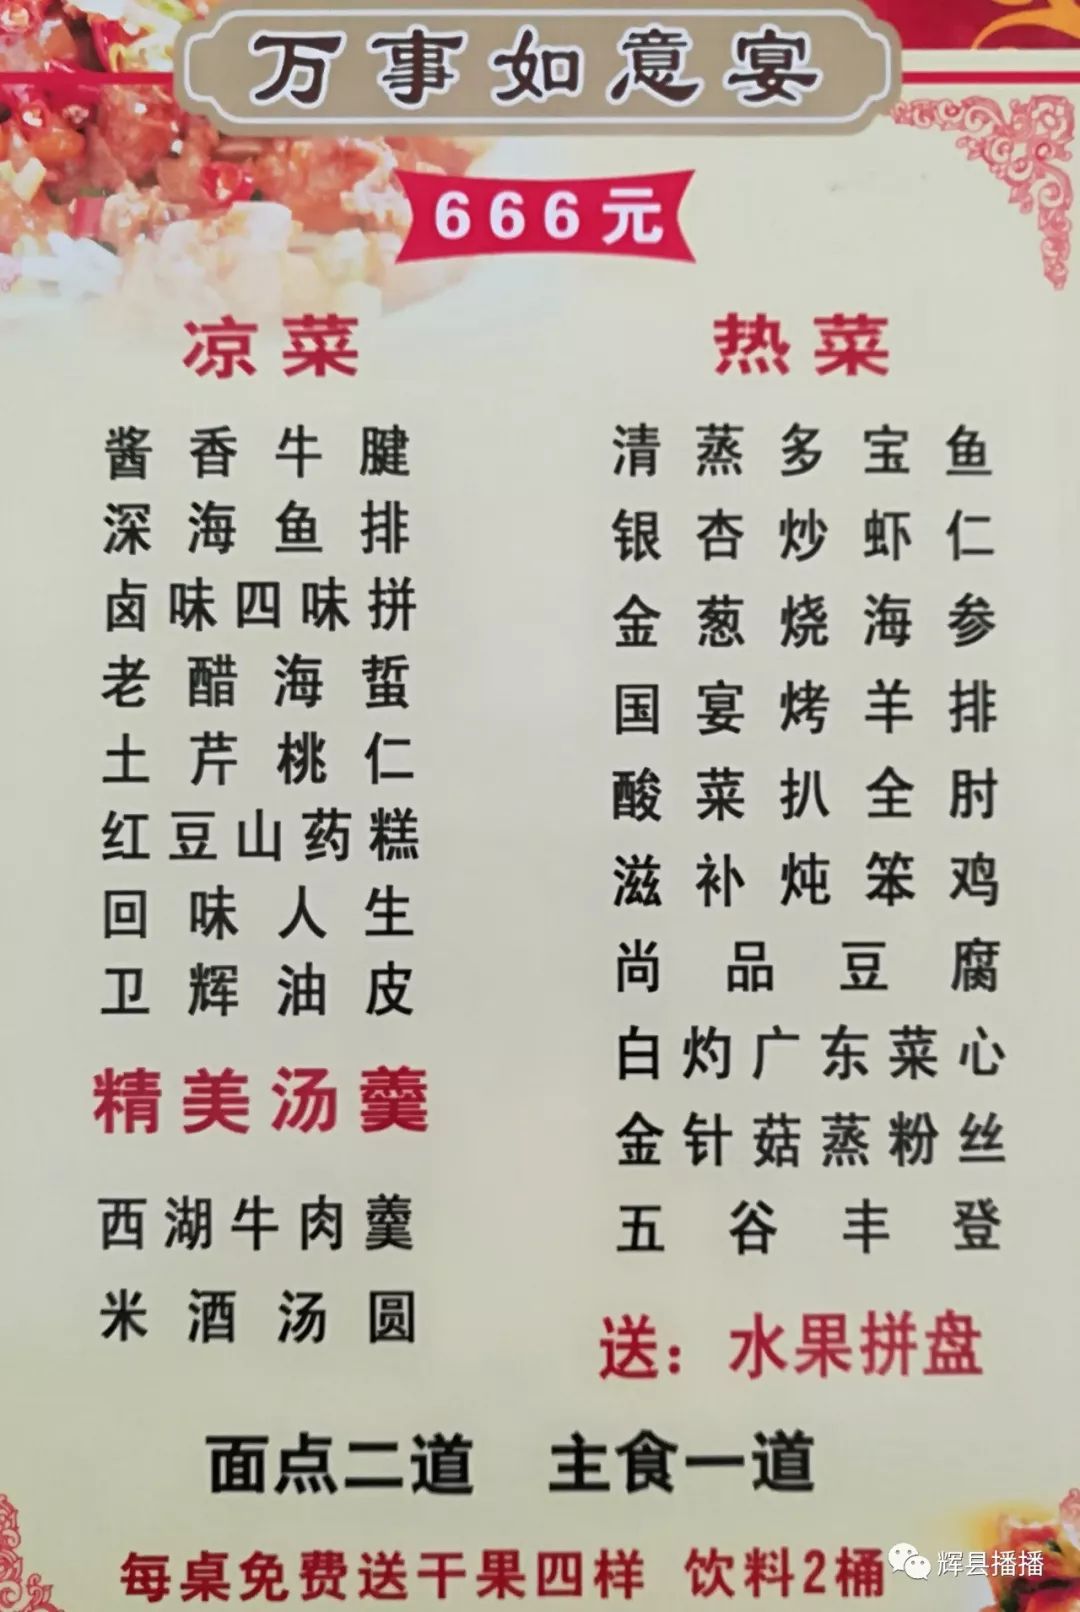 万事如意宴
666元
凉菜
酱香牛腱
深海鱼排
卤味四味拼
老醋海蜇
土芹桃仁
红豆山药糕
回味人生
卫辉油皮
精美汤羹
西湖牛肉羹
米酒汤圆
热菜
清蒸多宝鱼
银杏炒虾仁
金葱烧海参
国宴烤羊排
酸菜扒全肘
滋补炖笨鸡
尚品豆腐
白灼广东菜心
金针菇蒸粉丝
五谷丰登
送：水果拼盘
面点二道 主食一道
每桌免费送干果四样 饮料2桶
辉县播播